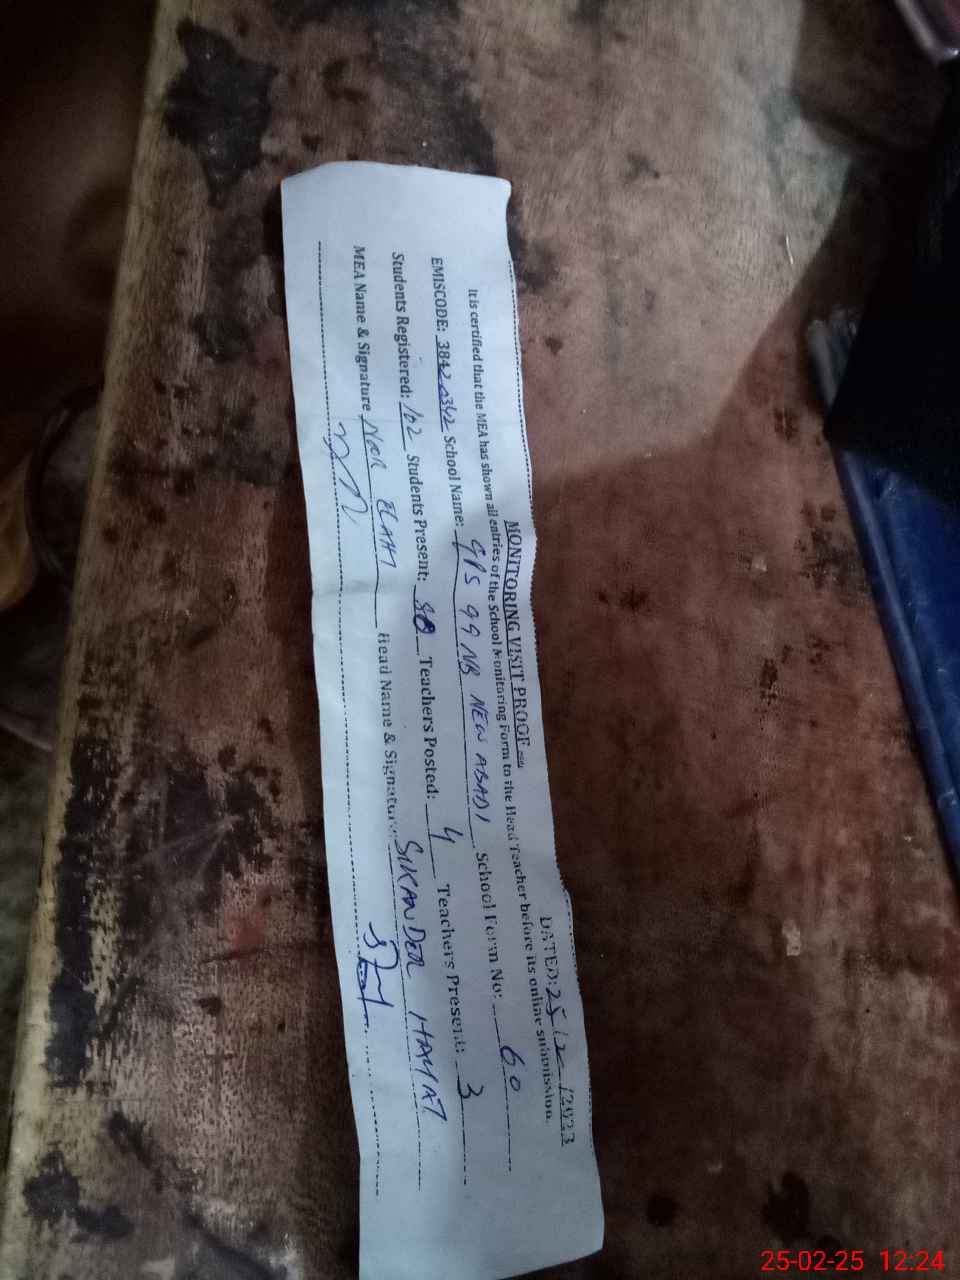 MONITORING VISIT PROOF
DATED: 25/2/2023
It is certified that the MEA has shown all entries of the School Monitoring Form to the Head Teacher before its online submission.
EMISCODE: 38420342 School Name: GPS 99 NB NEW ABADI School Form No: 60
Students Registered: 102 Students Present: 80 Teachers Posted: 4 Teachers Present: 3
MEA Name & Signature NOOR ELAHI Head Name & Signature: SIKANDER HAYAT
25-02-25 12:24